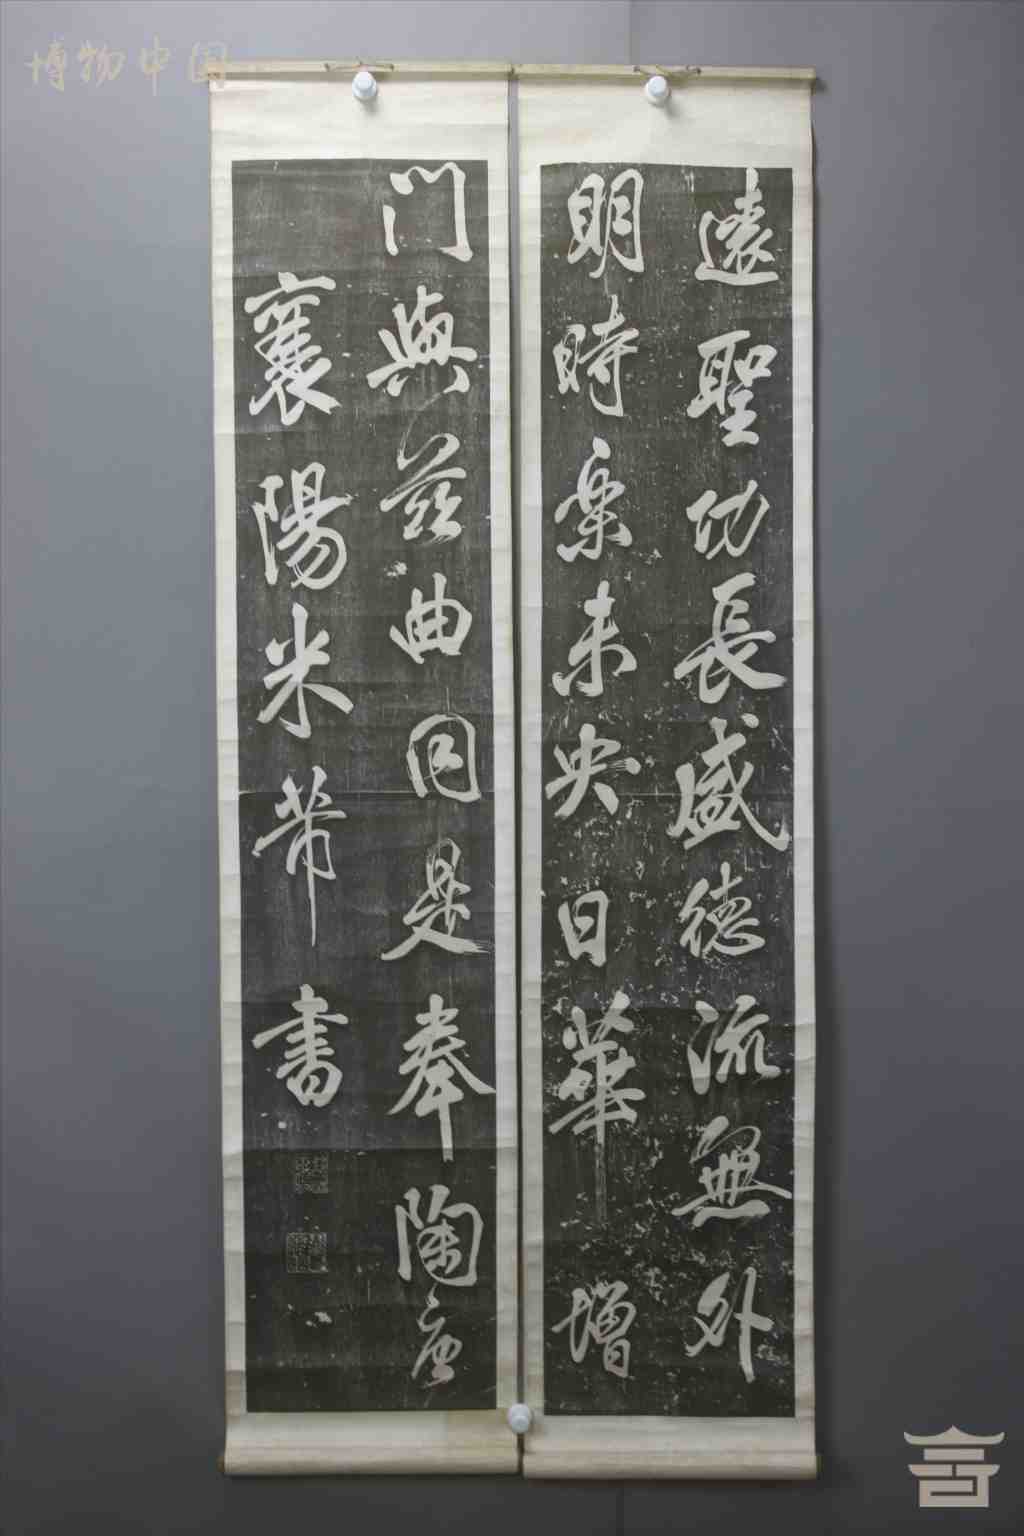 博物中国
遠聖功長盛德流無外
明時樂未央日華增
門與茲曲同是奉陶唐
襄陽米芾書